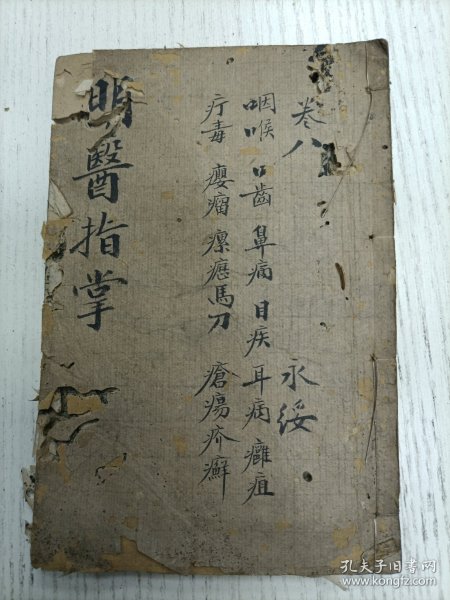 卷八
永绥
咽喉 口齒 鼻病 目疾 耳病 癰疽
疔毒 癭瘤 瘰癧馬刀 瘡瘍疥癬
明醫指掌
孔夫子旧书网
www.kongfz.com